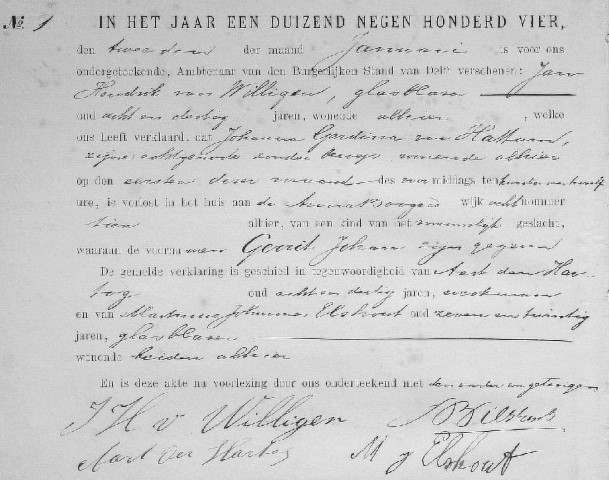 No 1 IN HET JAAR EEN DUIZEND NEGEN HONDERD VIER,
den tweeden der maand Januari is voor ons
ondergeteekende, Ambtenaar van den Burgelijken Stand van Delft verschenen: Jan
Hendrik van Willigen, glasblazer
oud acht en dertig jaren, wonende alhier, welke
ons heeft verklaard, dat Johanna Gerdina van Hattum,
zijne echtgenoote zonder beroep, wonende alhier
op den eersten dezer maand des voormiddags ten
ure, is verlost in het huis aan de wijk acht nummer
tien alhier, van een kind van het mannelijk geslacht,
waaraan de voornamen Gerrit Johan zijn gegeven
De gemelde verklaring is geschied in tegenwoordigheid van Aart den Har-
tog oud acht en dertig jaren, werkman
en van Martinus Johannes Elshout oud zeven en twintig
jaren, glasblazer
wonende beiden alhier
En is deze akte na voorlezing door ons onderteekend met den vader en getuigen
J H v Willigen
Aart den Hartog M J Elshout